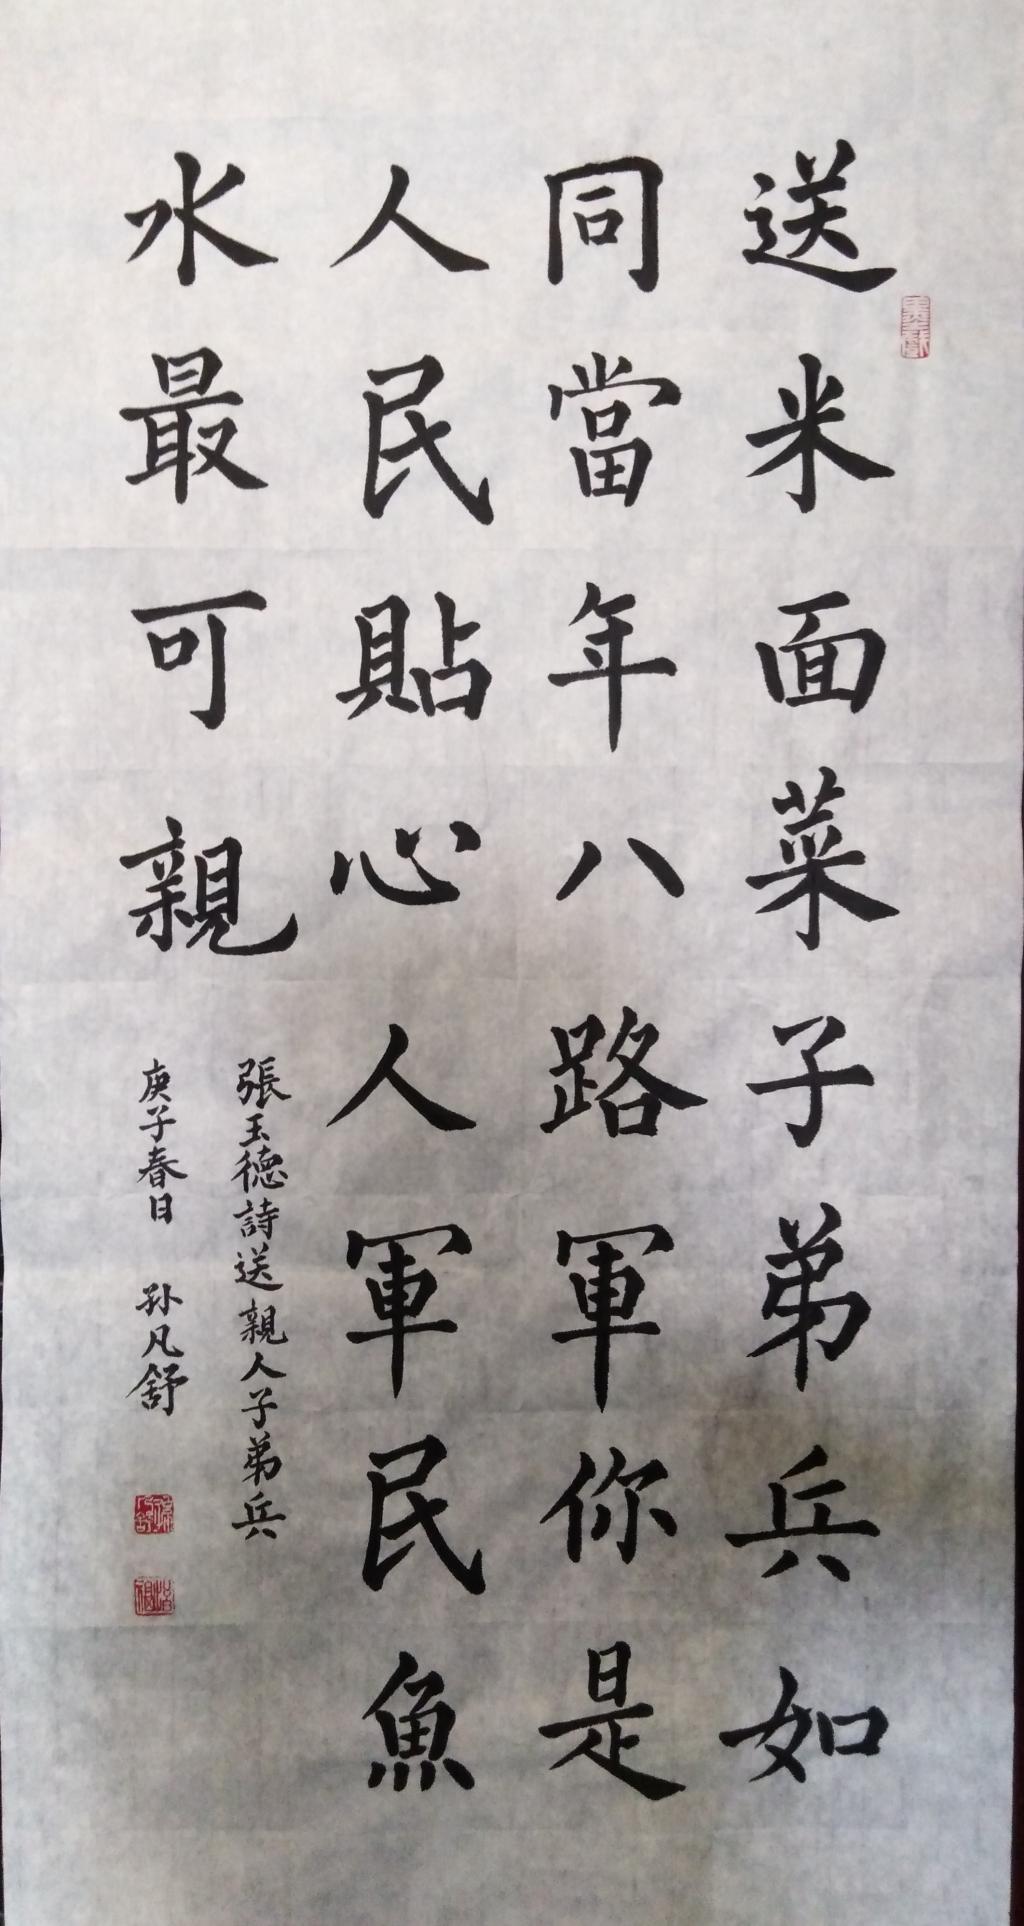 送米面菜子弟兵如
同當年八路軍你是
人民貼心人軍民魚
水最可親
張玉德詩送親人子弟兵
庚子春日 孙凡舒